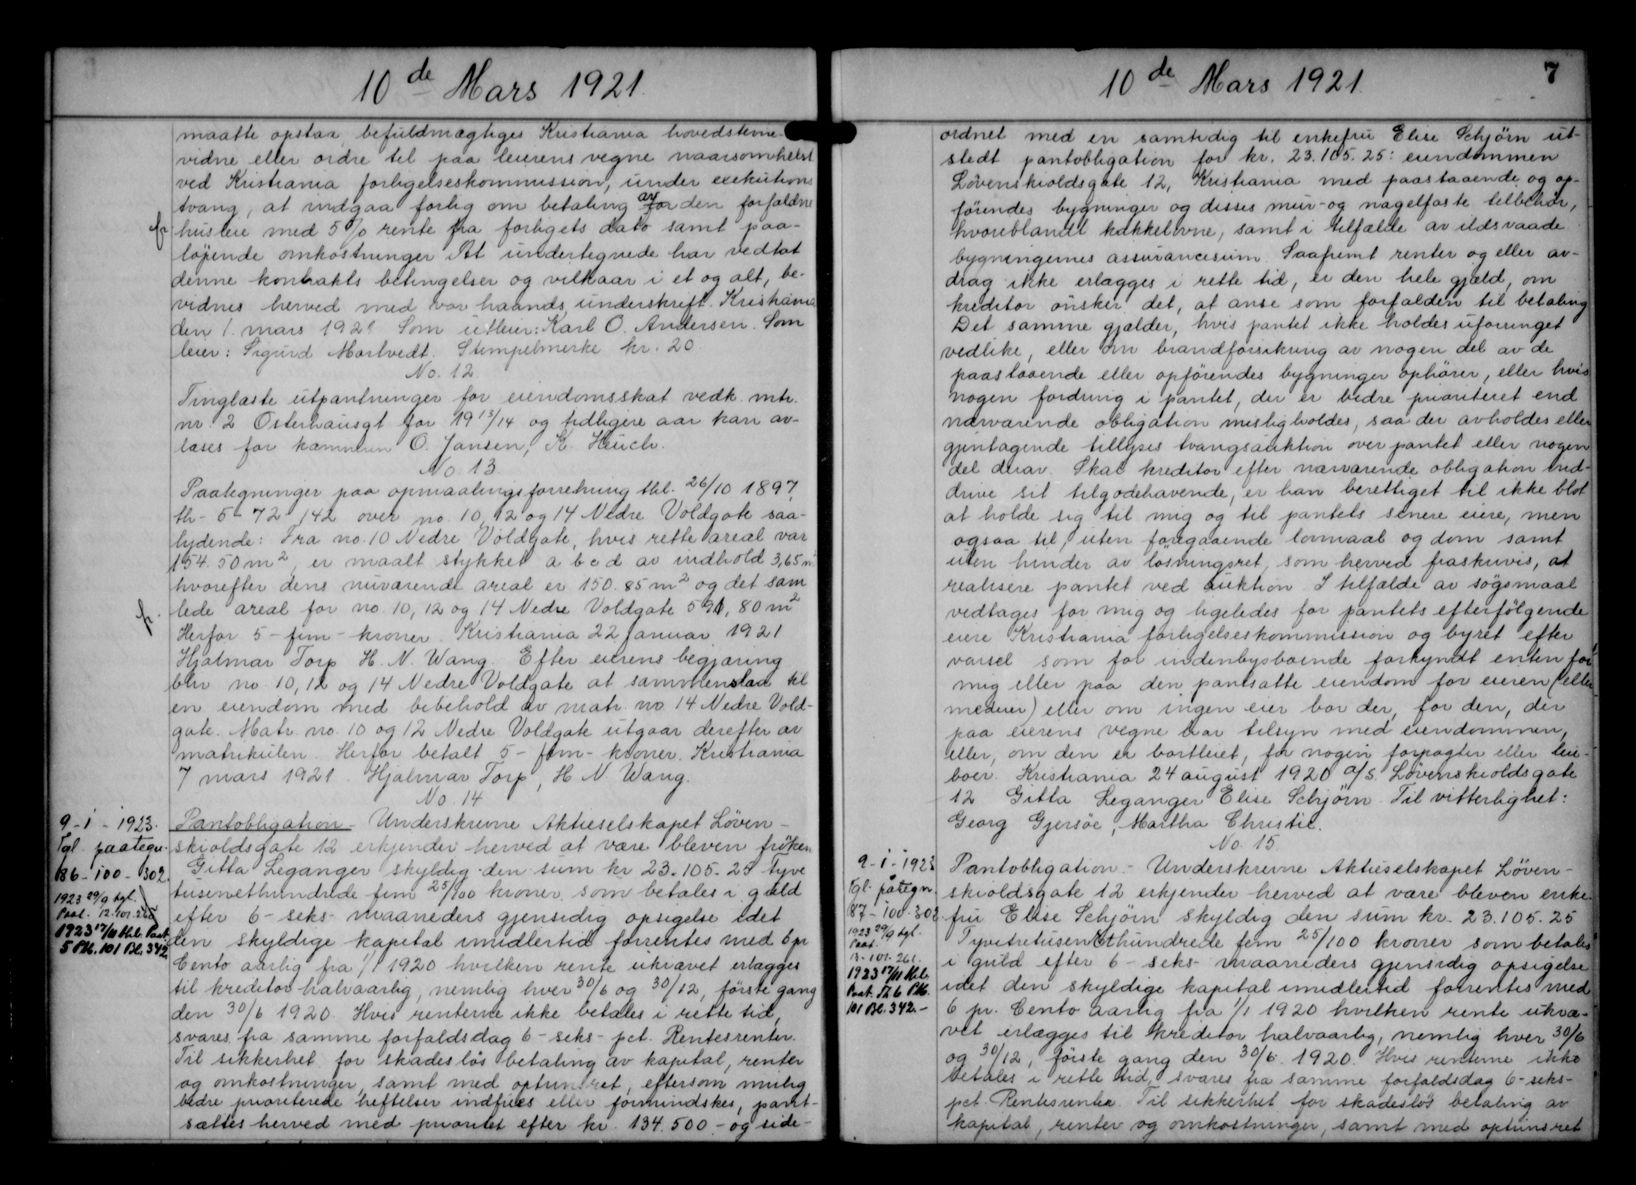 10de Mars 1921.
maatte opstaa, befuldmægtiges Kristiania hovedstevne-
vidne eller ordre til paa leierens vegne naarsomhelst
ved Kristiania forligelseskommission, under exekutions
tvang, at indgaa forlig om betaling av den forfaldne
husleie med 5% rente fra forligets dato samt paa-
løpende omkostninger At undertegnede har vedtat
denne kontrakts betingelser og vilkaar i et og alt, be-
vidnes herved med vor haands underskrift. Kristiania
den 1. mars 1921 Som utleier: Karl O. Andersen. Som
leier: Sigurd Mortvedt. Stempelmerke kr. 20.
No. 12
Tinglæste utpantninger for eiendomsskat vedk. mtr.
nr. 2 Osterhausgt for 1913/14 og tidligere aar kan av-
læses for kæmneren O. Jansen, K. Heuch.
No. 13
Paategninger paa opmaalingsforretning tbl. 26/10 1897,
th- 5- 72, 142 over no. 10, 12 og 14 Nedre Voldgate saa-
lydende: Fra no. 10 Nedre Voldgate, hvis rette areal var
154.50 m2, er maalt stykket a b c d av indhold 3,65 m2
hvorefter dens nuværende areal er 150.85 m2 og det sam
lede areal for no. 10, 12 og 14 Nedre Voldgate 591,80 m2
Herfor 5 - fem - kroner. Kristiania 22 januar 1921
Hjalmar Torp H. N. Wang. Efter eierens begjæring
blir no 10, 12 og 14 Nedre Voldgate at sammenslaa til
en eiendom med bibehold av matr. no. 14 Nedre Vold-
gate. Matr. no. 10 og 12 Nedre Voldgate utgaar derefter av
matrikulen. Herfor betalt 5 - fem - kroner. Kristiania
7 mars 1921. Hjalmar Torp, H N. Wang.
No. 14
9-1-1923.
Tgl. paategn.
86-100-302.
1923 29/9 tgl.
Paat. 12.101.260
1923 17/11 tbl. Paat
5 Pk. 101 Bl. 342
Pantobligation - Underskrevne Aktieselskapet Løven-
skioldsgate 12 erkjender herved at være bleven frøken
Gitta Leganger skyldig den sum kr 23.105.25 Tyve
tusenethundrede fem 25/100 kroner som betales i guld
efter 6 - seks - maaneders gjensidig opsigelse idet
den skyldige kapital imidlertid forrentes med 6 pr
Cento aarlig fra 1/1 1920 hvilken rente ukrævet erlægges
til kreditor halvaarlig, nemlig hver 30/6 og 30/12, første gang
den 30/6 1920. Hvis renterne ikke betales i rette tid,
svares fra samme forfaldsdag 6 - seks - pct. Rentesrenter.
Til sikkerhet for skadesløs betaling av kapital, renter
og omkostninger, samt med optrinsret, eftersom mulig
bedre prioriterede heftelser indfries eller formindskes, pant-
sættes herved med prioritet efter kr. 134.500 - og side-
10de Mars 1921.
7
ordnet med en samtidig til enkefru Elise Schjørn ut-
stedt pantobligation for kr. 23.105.25: eiendommen
Løvenskioldsgate 12, Kristiania med paastaaende og op-
førendes bygninger og disses mur- og nagelfaste tilbehør,
hvoriblandt kakkelovne, samt i tilfælde av ildsvaade
bygningernes assurancesum. Saafremt renter og eller av-
drag ikke erlægges i rette tid, er den hele gjæld, om
kreditor ønsker det, at anse som forfalden til betaling
Det samme gjælder, hvis pantet ikke holdes uforringet
vedlike, eller om brandforsikring av nogen del av de
paastaaende eller opførendes bygninger ophører, eller hvis
nogen fordring i pantet, der er bedre prioriteret end
nærværende obligation misligholdes, saa der avholdes eller
gjentagende tillyses tvangsauktion over pantet eller nogen
del derav. Skal kreditor efter nærværende obligation ind-
drive sit tilgodehavende, er han berettiget til ikke blot
at holde sig til mig og til pantets senere eiere, men
ogsaa til, uten foregaaende lovmaal og dom samt
uten hinder av løsningsret, som herved fraskrives, at
realisere pantet ved auktion I tilfælde av søgsmaal
vedtages for mig og ligeledes for pantets efterfølgende
eiere Kristiania forligelseskommission og byret efter
varsel som for indenbysboende forkyndt enten for
mig eller paa den pantsatte eiendom for eieren (eller
medeier) eller om ingen eier bor der, for den, der
paa eierens vegne har tilsyn med eiendommen,
eller, om den er bortleiet, for nogen forpagter eller lei-
boer. Kristiania 24 august 1920 A/S. Løvenskioldsgate
12 Gitta Leganger Elise Schjørn. Til vitterlighet:
Georg Gjersøe, Martha Christie.
No. 15
9-1-1923
Tgl. påtegn.
87-100-303
1923 29/9 tgl.
Paat.
13-101-261.
1923 17/11 tbl.
Paat. Th 6 Pk.
101 Bl. 342.-
Pantobligation - Underskrevne Aktieselskapet Løven-
skioldsgate 12 erkjender herved at være bleven enke-
fru Elise Schjørn skyldig den sum kr. 23.105-25
Tyvetretusenethundrede fem 25/100 kroner som betales
i guld efter 6 - seks - maaneders gjensidig opsigelse
idet den skyldige kapital imidlertid forrentes med
6 pr. Cento aarlig fra 1/1 1920 hvilken rente ukræ-
vet erlægges til kreditor halvaarlig, nemlig hver 30/6
og 30/12, første gang den 30/6 1920. Hvis renterne ikke
betales i rette tid, svares fra samme forfaldsdag 6-seks-
pct. Rentesrenter. Til sikkerhet for skadesløs betaling av
kapital, renter og omkostninger, samt med optrinsret